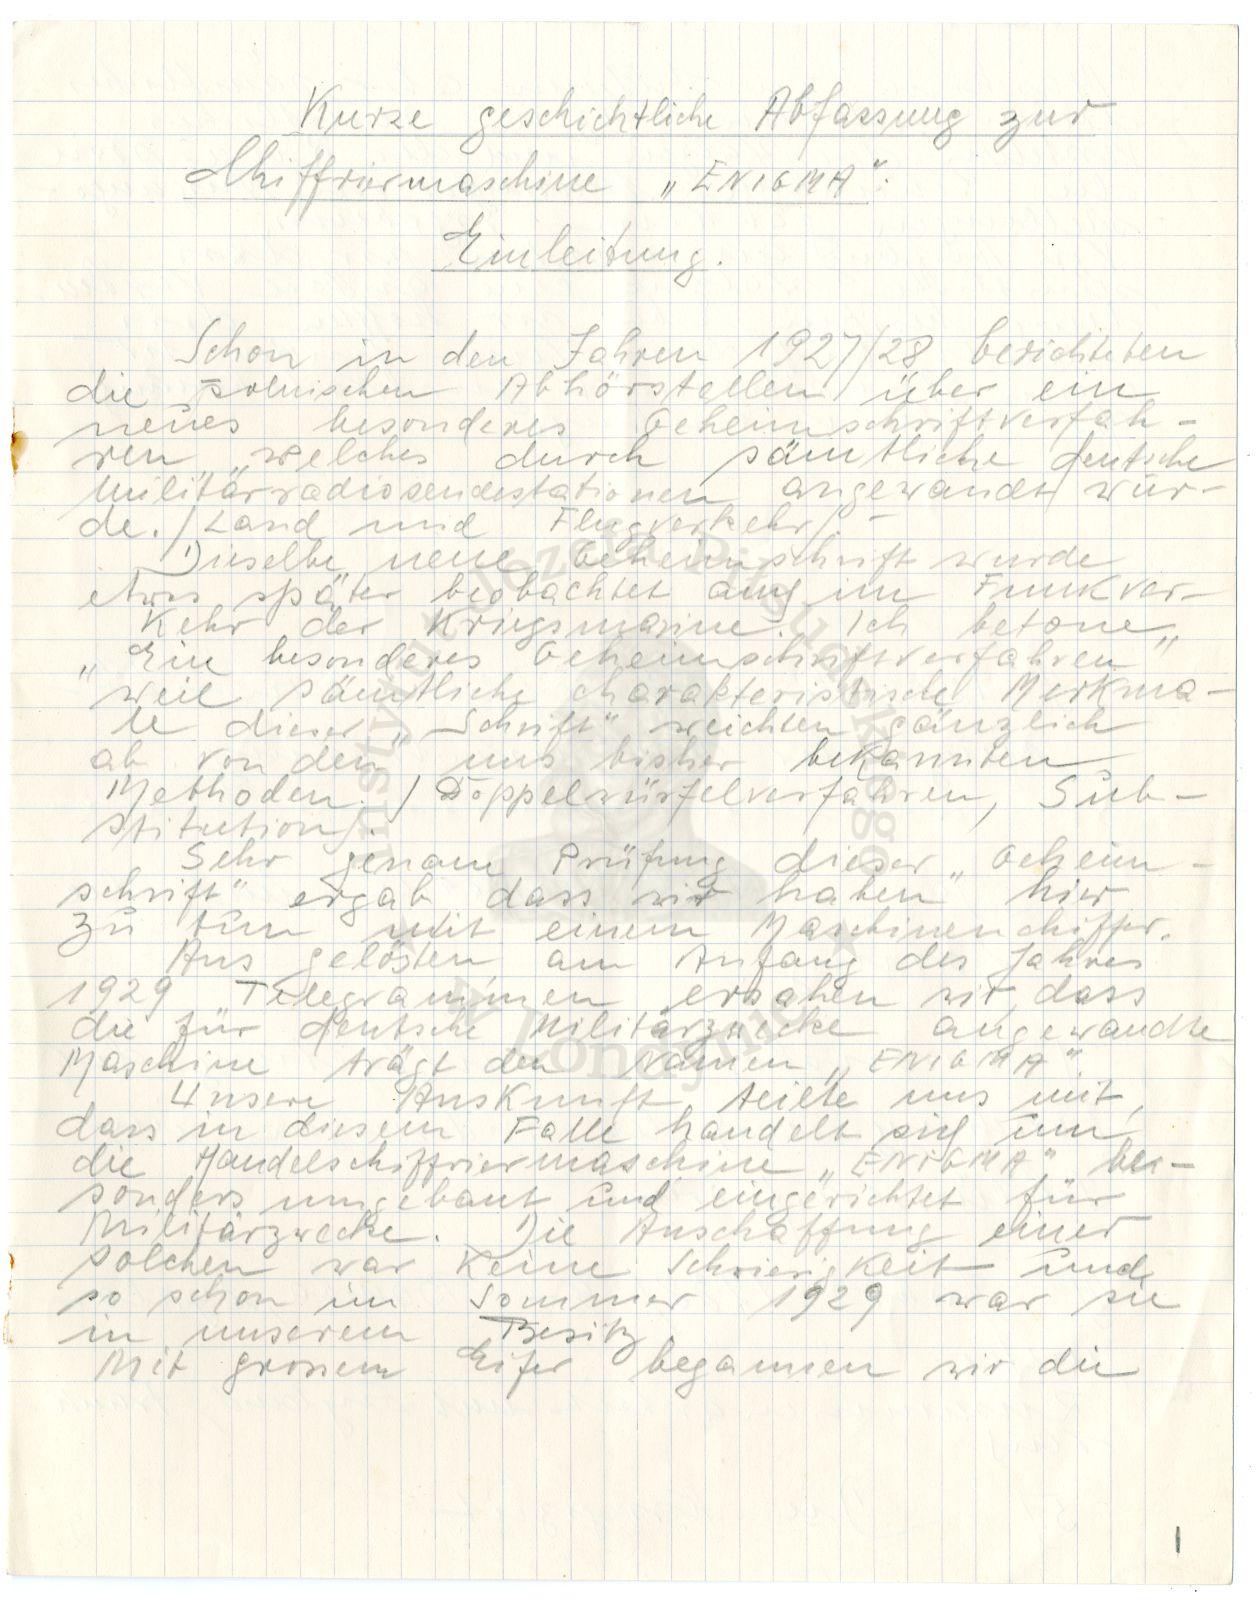 Kurze geschichtliche Abfassung zur
Chiffriermaschine „ENIGMA“.
Einleitung.
Schon in den Jahren 1927/28 berichteten
die polnischen Abhörstellen über ein
neues besonderes Geheimschriftverfah-
ren welches durch sämtliche deutsche
Militärradiosendestationen angewandt wur-
de. /Land und Flugverkehr/. -
Dieselbe neue Geheimschrift wurde
etwas später beobachtet auch im Funkver-
kehr der Kriegsmarine. Ich betone
„Ein besonderes Geheimschriftverfahren“
weil sämtliche charakteristische Merkma-
le dieser „Schrift“ weichten gänzlich
ab von den uns bisher bekannten
Methoden. / Doppelwürfelverfahren, Sub-
stitution/.
Sehr genaue Prüfung dieser „Geheim-
schrift“ ergab dass wir haben hier
zu tun mit einem Maschinenchiffer.
Aus gelösten am Anfang des Jahres
1929 Telegrammen ersahen wir dass
die für deutsche Militärzwecke angewandte
Maschine trägt den Namen „ENIGMA“.
Unsere Auskunft teilte uns mit,
dass in diesem Falle handelt sich um
die Handelschiffriermaschine „ENIGMA“ be-
sonders umgebaut und eingerichtet für
Militärzwecke. Die Anschaffung einer
solchen war keine Schwierigkeit und
so schon im Sommer 1929 war sie
in unserem Besitz.
Mit grossem Eifer begannen wir die
1
Instytut Józefa Piłsudskiego
★ w Londynie ★